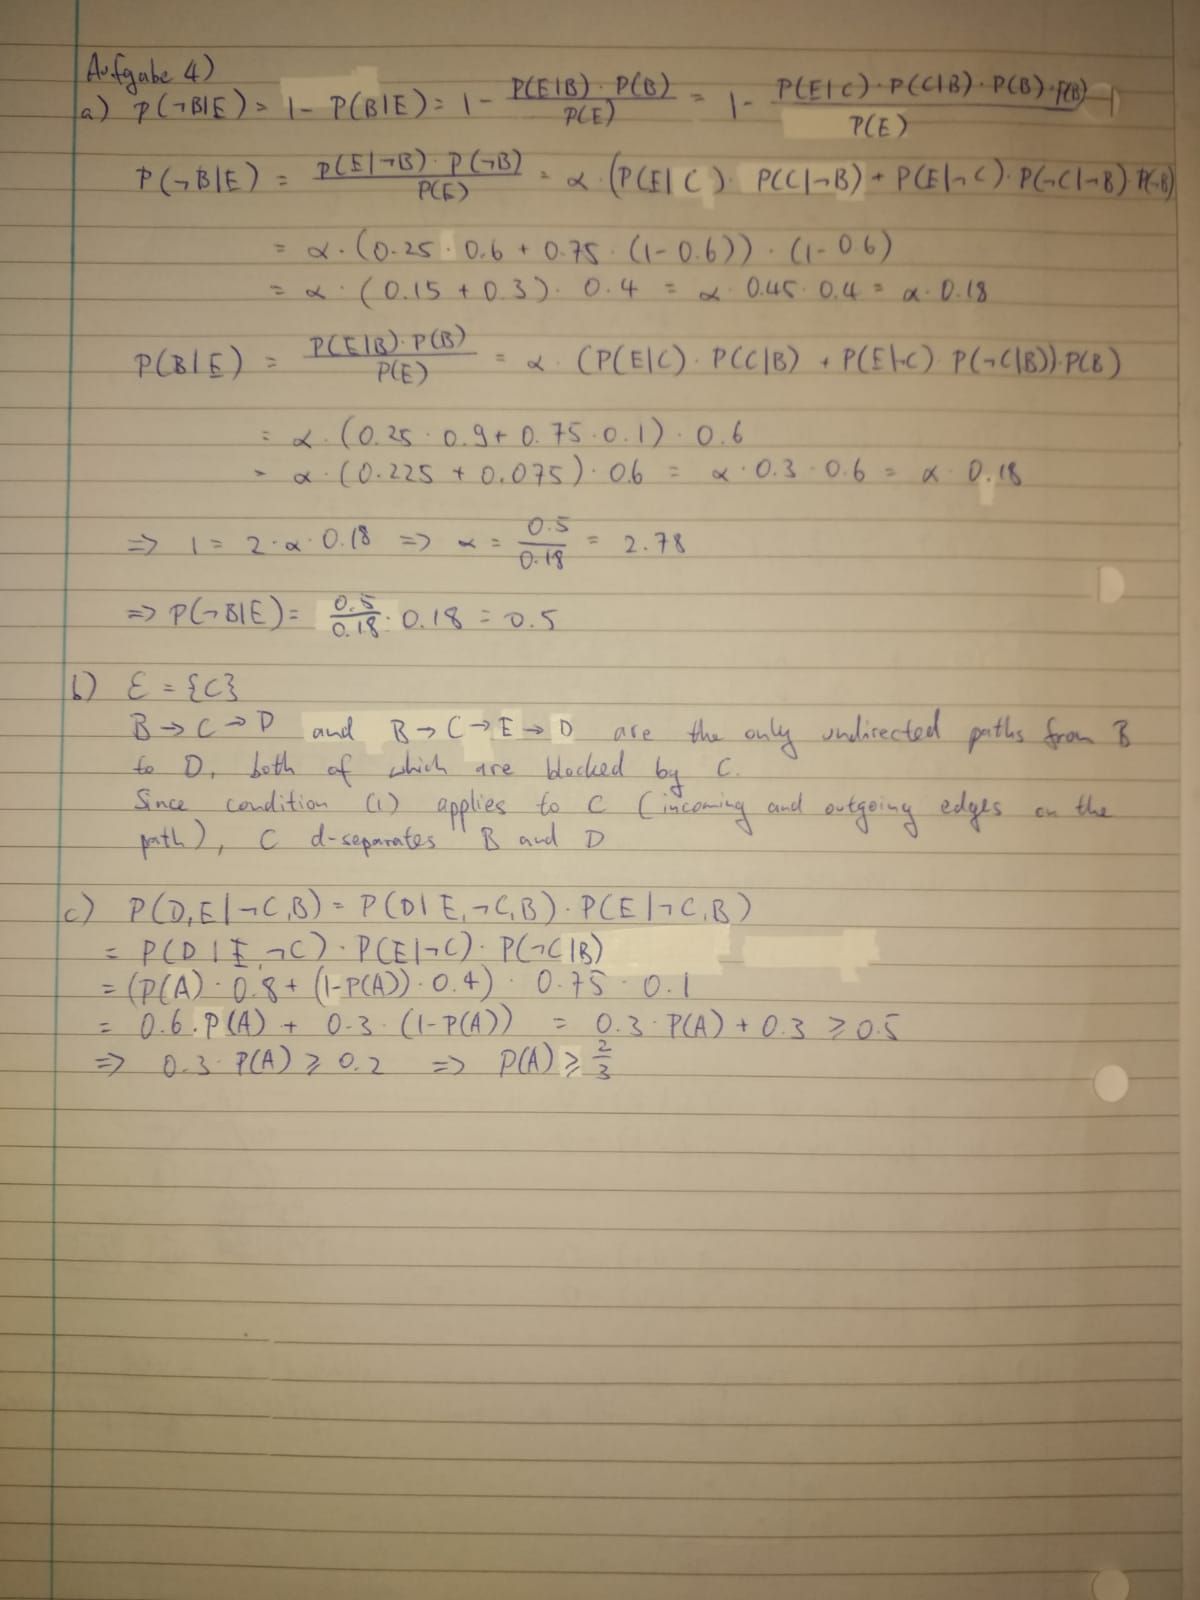 Aufgabe 4)
a) P(¬B|E) = 1 - P(B|E) = 1 - P(E|B) · P(B) / P(E) = 1 - P(E|C) · P(C|B) · P(B) · P(B) / P(E)
P(¬B|E) = P(E|¬B) · P(¬B) / P(E) = α · (P(E|C) · P(C|¬B) + P(E|¬C) · P(¬C|¬B) · P(¬B)
= α · (0.25 · 0.6 + 0.75 · (1 - 0.6)) · (1 - 0.6)
= α · (0.15 + 0.3) · 0.4 = α · 0.45 · 0.4 = α · 0.18
P(B|E) = P(E|B) · P(B) / P(E) = α · (P(E|C) · P(C|B) + P(E|¬C) · P(¬C|B)) · P(B)
= α · (0.25 · 0.9 + 0.75 · 0.1) · 0.6
= α · (0.225 + 0.075) · 0.6 = α · 0.3 · 0.6 = α · 0.18
=> 1 = 2 · α · 0.18 => α = 0.5 / 0.18 = 2.78
=> P(¬B|E) = 0.5 / 0.18 · 0.18 = 0.5
b) Ɛ = {C}
B → C → D and B → C → E → D are the only undirected paths from B
to D, both of which are blocked by C.
Since condition (1) applies to C (incoming and outgoing edges on the
path), C d-separates B and D
c) P(D,E|¬C,B) = P(D|E,¬C,B) · P(E|¬C,B)
= P(D|E,¬C) · P(E|¬C) · P(¬C|B)
= (P(A) · 0.8 + (1-P(A)) · 0.4) · 0.75 · 0.1
= 0.6 · P(A) + 0.3 · (1-P(A)) = 0.3 · P(A) + 0.3 ≥ 0.5
=> 0.3 · P(A) ≥ 0.2 => P(A) ≥ 2/3